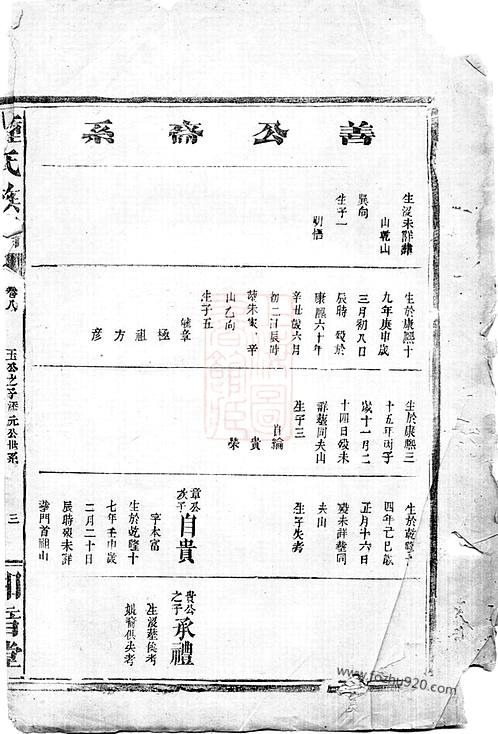 善公齋系
生沒未詳葬
山乾山
巽向
生子一
朝悟
生於康熙十
九年庚申歲
三月初八日
辰時 歿於
康熙六十年
辛丑歲六月
初二日辰時
葬朱家 辛
山乙向
生子五
毓章
極
祖
方
彥
生於康熙三
十五年丙子
歲十一月二
十四日歿未
詳葬同夫山
生子三
自綸
貴
榮
生於乾隆
四年己巳歲
正月十六日
歿未詳葬同
夫山
生子失考
章公
次子
自貴
字本富
生於乾隆十
七年壬申歲
二月二十日
辰時歿未詳
葬門首祖山
貴公
之子
承禮
生沒葬俱考
娶俱失考
氏族
卷八
玉公之子
元公世系
三
www.fozhu920.com